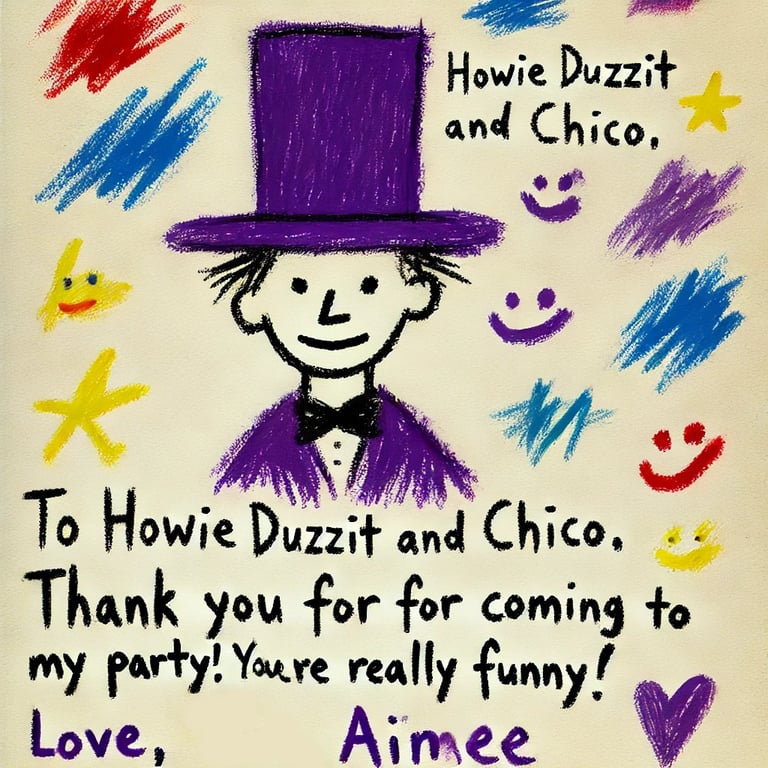 Howie Duzzit
and Chico.
To Howie Duzzit and Chico.
Thank you for for coming to
my party! Youre really funny!
Love, Aimee